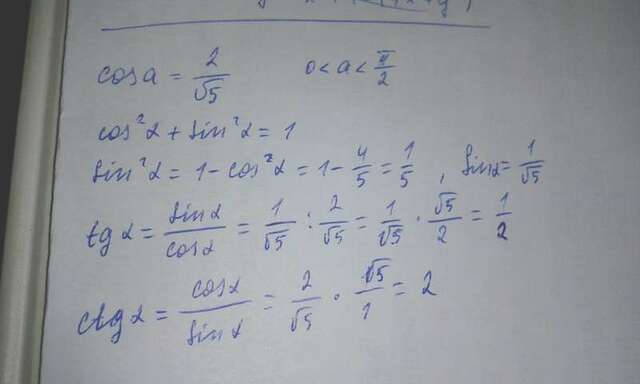 cos a = 2/√5 0 < a < π/2
cos²α + sin²α = 1
sin²α = 1 - cos²α = 1 - 4/5 = 1/5 , sinα = 1/√5
tg α = sin α/cos α = 1/√5 : 2/√5 = 1/√5 · √5/2 = 1/2
ctg α = cos α/sin α = 2/√5 · √5/1 = 2